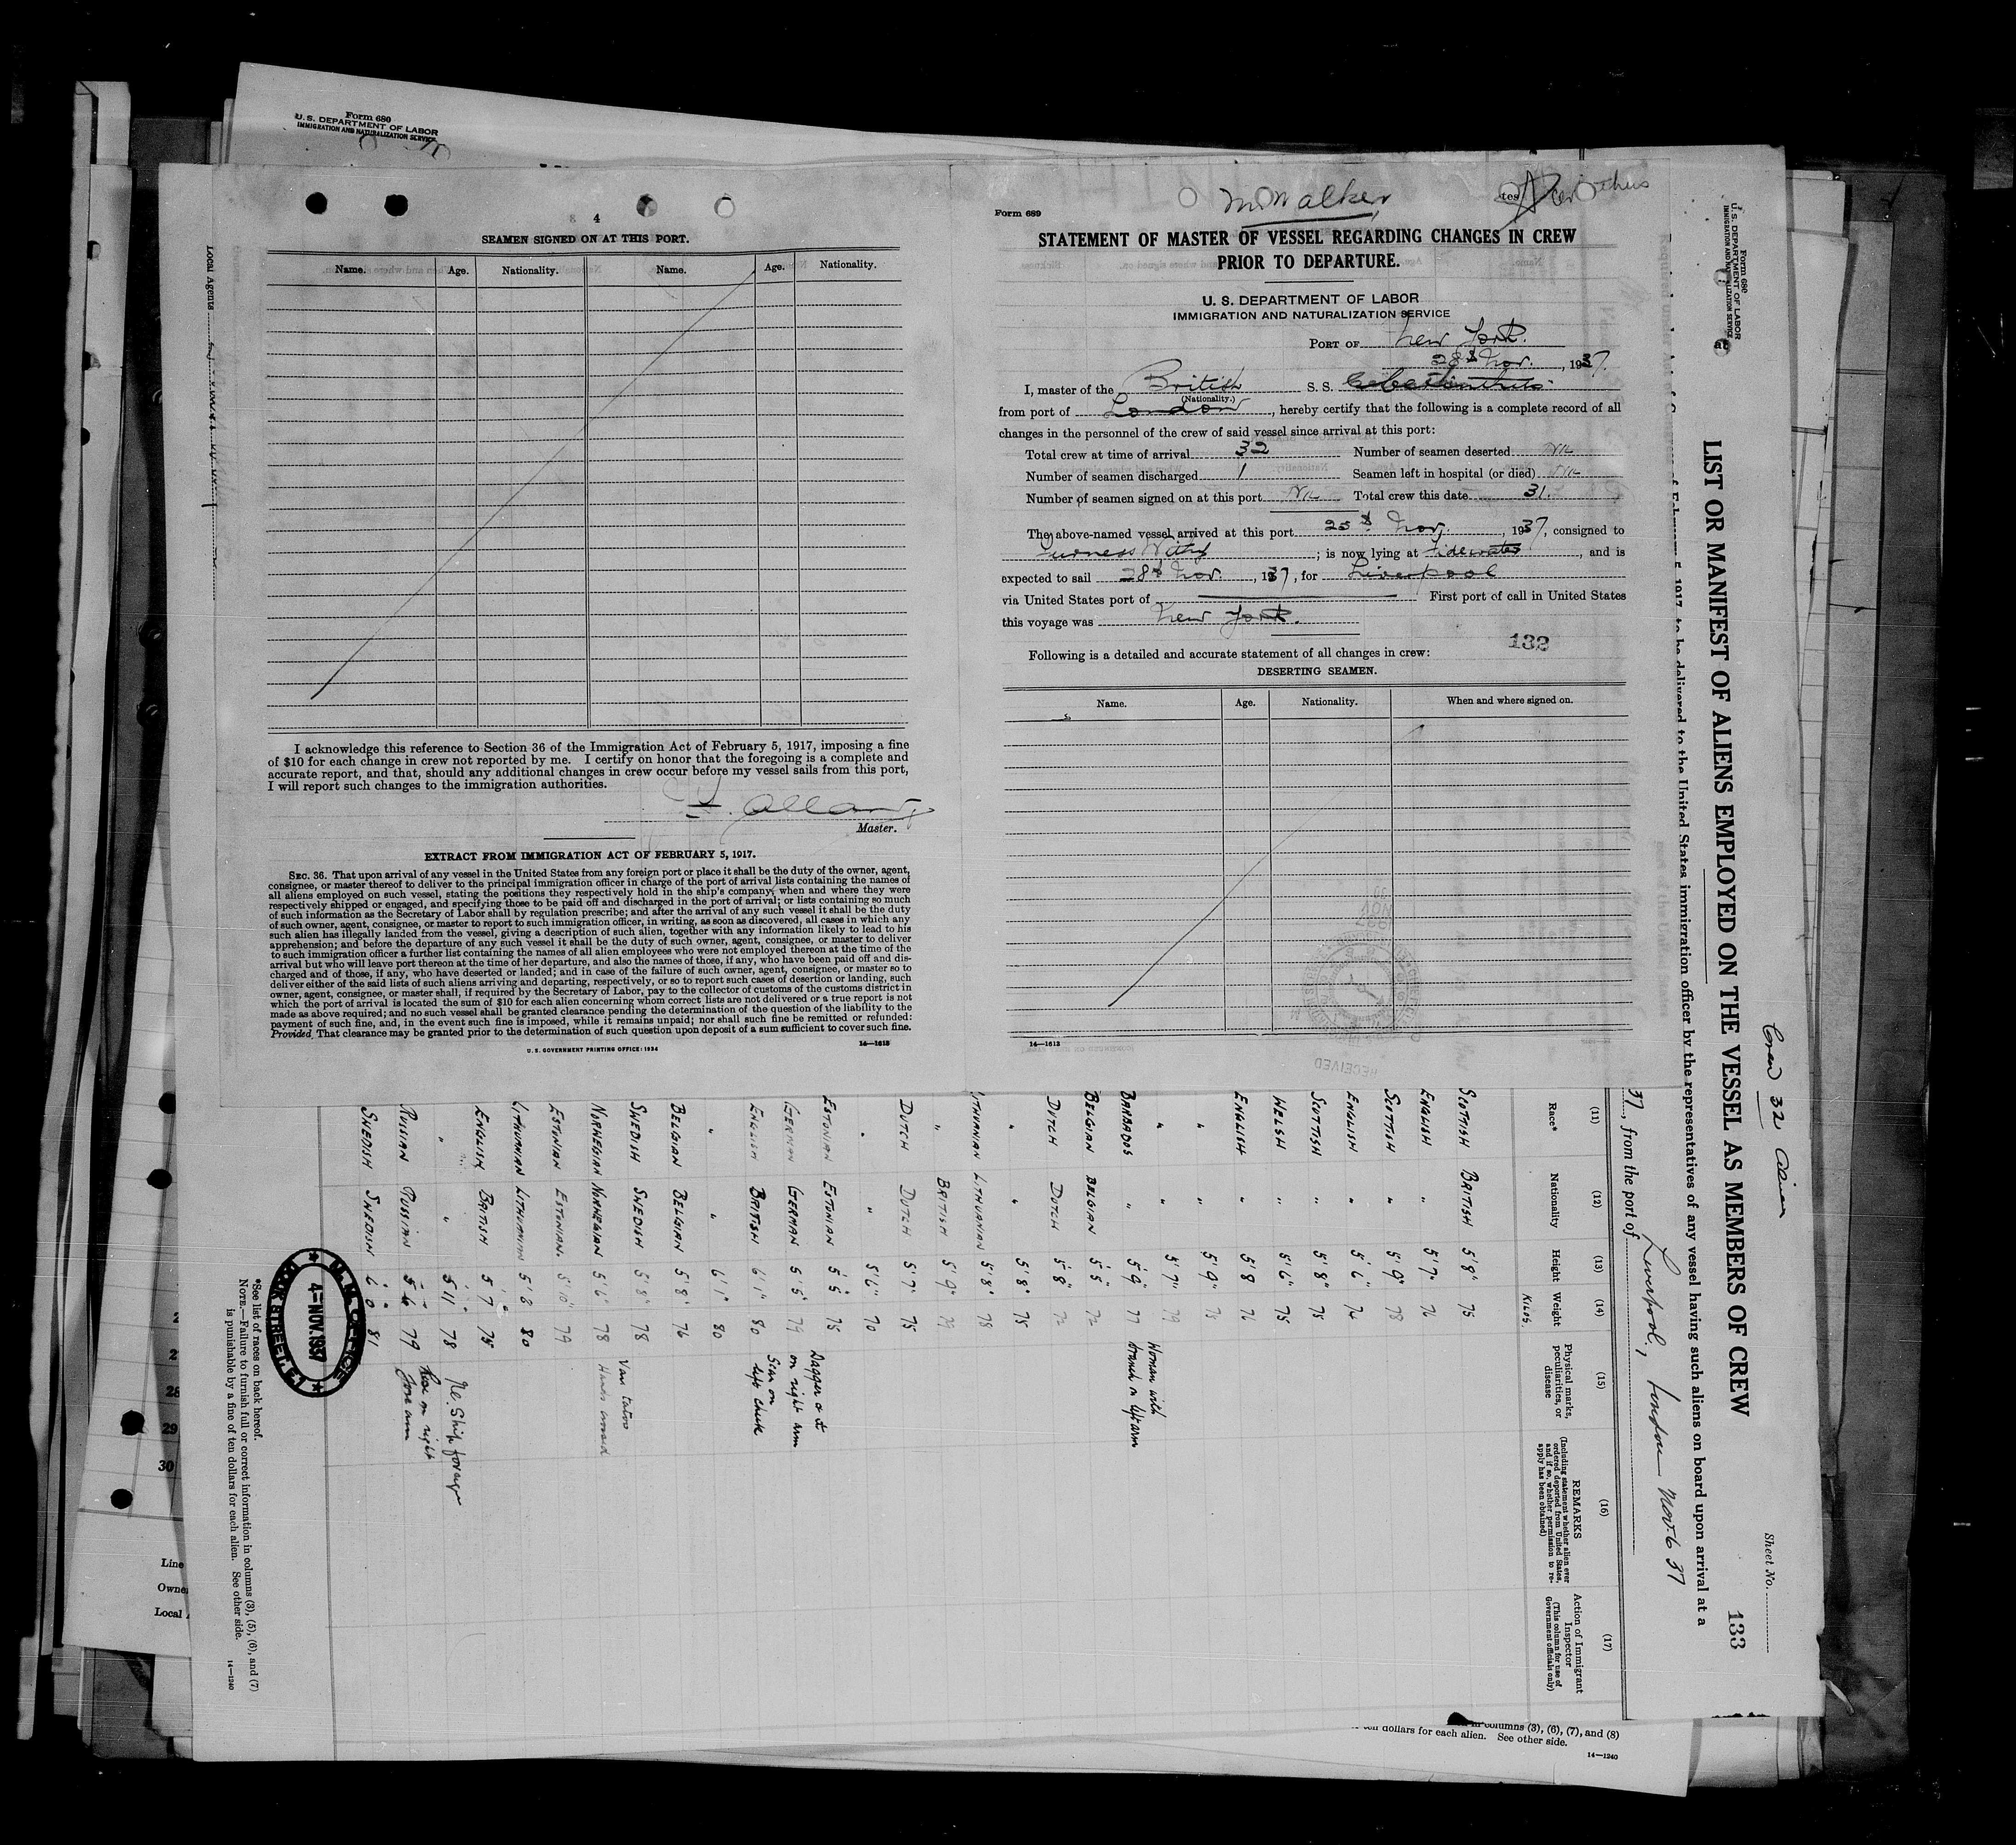 Form 680
U. S. DEPARTMENT OF LABOR
IMMIGRATION AND NATURALIZATION SERVICE
Local Agents
4
SEAMEN SIGNED ON AT THIS PORT.
Name. Age. Nationality. Name. Age. Nationality.
I acknowledge this reference to Section 36 of the Immigration Act of February 5, 1917, imposing a fine
of $10 for each change in crew not reported by me. I certify on honor that the foregoing is a complete and
accurate report, and that, should any additional changes in crew occur before my vessel sails from this port,
I will report such changes to the immigration authorities.
Master.
EXTRACT FROM IMMIGRATION ACT OF FEBRUARY 5, 1917.
SEC. 36. That upon arrival of any vessel in the United States from any foreign port or place it shall be the duty of the owner, agent,
consignee, or master thereof to deliver to the principal immigration officer in charge of the port of arrival lists containing the names of
all aliens employed on such vessel, stating the positions they respectively hold in the ship's company, when and where they were
respectively shipped or engaged, and specifying those to be paid off and discharged in the port of arrival; or lists containing so much
of such information as the Secretary of Labor shall by regulation prescribe; and after the arrival of any such vessel it shall be the duty
of such owner, agent, consignee, or master to report to such immigration officer, in writing, as soon as discovered, all cases in which any
such alien has illegally landed from the vessel, giving a description of such alien, together with any information likely to lead to his
apprehension; and before the departure of any such vessel it shall be the duty of such owner, agent, consignee, or master to deliver
to such immigration officer a further list containing the names of all alien employees who were not employed thereon at the time of the
arrival but who will leave port thereon at the time of her departure, and also the names of those, if any, who have been paid off and dis-
charged and of those, if any, who have deserted or landed; and in case of the failure of such owner, agent, consignee, or master so to
deliver either of the said lists of such aliens arriving and departing, respectively, or so to report such cases of desertion or landing, such
owner, agent, consignee, or master shall, if required by the Secretary of Labor, pay to the collector of customs of the customs district in
which the port of arrival is located the sum of $10 for each alien concerning whom correct lists are not delivered or a true report is not
made as above required; and no such vessel shall be granted clearance pending the determination of the question of the liability to the
payment of such fine, and, in the event such fine is imposed, while it remains unpaid; nor shall such fine be remitted or refunded:
Provided, That clearance may be granted prior to the determination of such question upon deposit of a sum sufficient to cover such fine.
U. S. GOVERNMENT PRINTING OFFICE: 1934 14—1613
Form 689
STATEMENT OF MASTER OF VESSEL REGARDING CHANGES IN CREW
PRIOR TO DEPARTURE.
U. S. DEPARTMENT OF LABOR
IMMIGRATION AND NATURALIZATION SERVICE
PORT OF New York.
28th Nov. , 1937.
I, master of the British S. S.
(Nationality.)
from port of London , hereby certify that the following is a complete record of all
changes in the personnel of the crew of said vessel since arrival at this port:
Total crew at time of arrival 32 Number of seamen deserted Nil
Number of seamen discharged 1 Seamen left in hospital (or died) Nil
Number of seamen signed on at this port Nil Total crew this date 31.
The above-named vessel arrived at this port 25th Nov. , 1937, consigned to
Furness Withy ; is now lying at Tidewater , and is
expected to sail 28th Nov. , 1937, for Liverpool
via United States port of First port of call in United States
this voyage was New York.
132
Following is a detailed and accurate statement of all changes in crew:
DESERTING SEAMEN.
Name. Age. Nationality. When and where signed on.
RECEIVED
14—1613
Form 680
U. S. DEPARTMENT OF LABOR
IMMIGRATION AND NATURALIZATION SERVICE
Crew 32
Sheet No.
133
LIST OR MANIFEST OF ALIENS EMPLOYED ON THE VESSEL AS MEMBERS OF CREW
February 5, 1917, to be delivered to the United States immigration officer by the representatives of any vessel having such aliens on board upon arrival at a
37, from the port of Liverpool, London Nov. 6 37
(11) (12) (13) (14) (15) (16) (17)
Race* Nationality Height Weight Physical marks, peculiarities, or disease REMARKS (Including statement whether alien ever ordered deported from United States, and if so, whether permission to re-apply has been obtained) Action of Immigrant Inspector (This column for use of Government officials only)
KILOS.
SCOTTISH BRITISH 5' 8" 75
ENGLISH " 5' 7" 76
SCOTTISH " 5' 9" 78
ENGLISH " 5' 6" 74
SCOTTISH " 5' 8" 75
WELSH " 5' 6" 75
ENGLISH " 5' 8 76
" " 5' 9" 75
" " 5' 7" 79 Woman with
BARBADOS " 5' 9" 77 branch on left arm
BELGIAN BELGIAN 5' 5" 72
DUTCH DUTCH 5' 8" 72
" " 5' 8" 75
LITHUANIAN LITHUANIAN 5' 8" 78
" BRITISH 5' 9"
DUTCH DUTCH 5' 7" 75
" " 5' 6" 70
ESTONIAN ESTONIAN. 5' 5" 75 Dagger
GERMAN GERMAN 5' 5" 79 on right arm
ENGLISH BRITISH 6' 1" 80 Scar on left cheek
" " 6' 1" 80
BELGIAN BELGIAN 5' 8" 76
SWEDISH SWEDISH 5' 8" 78
NORWEGIAN NORWEGIAN 5' 6" 78 Hands crossed
ESTONIAN ESTONIAN. 5' 10" 79
LITHUANIAN LITHUANIAN 5' 8 80
ENGLISH BRITISH 5' 7" 75
" " 5' 11" 78
RUSSIAN RUSSIAN 5' 6 79 on right fore arm
SWEDISH SWEDISH 6' 0" 81
4-NOV.1937
DOCK STREET, E.1
*See list of races on back hereof.
NOTE.—Failure to furnish full or correct information in columns (3), (5), (6), and (7)
is punishable by a fine of ten dollars for each alien. See other side.
14—1240
28
29
30
Line
Owne
Local
columns (3), (6), (7), and (8)
ten dollars for each alien. See other side.
14—1240